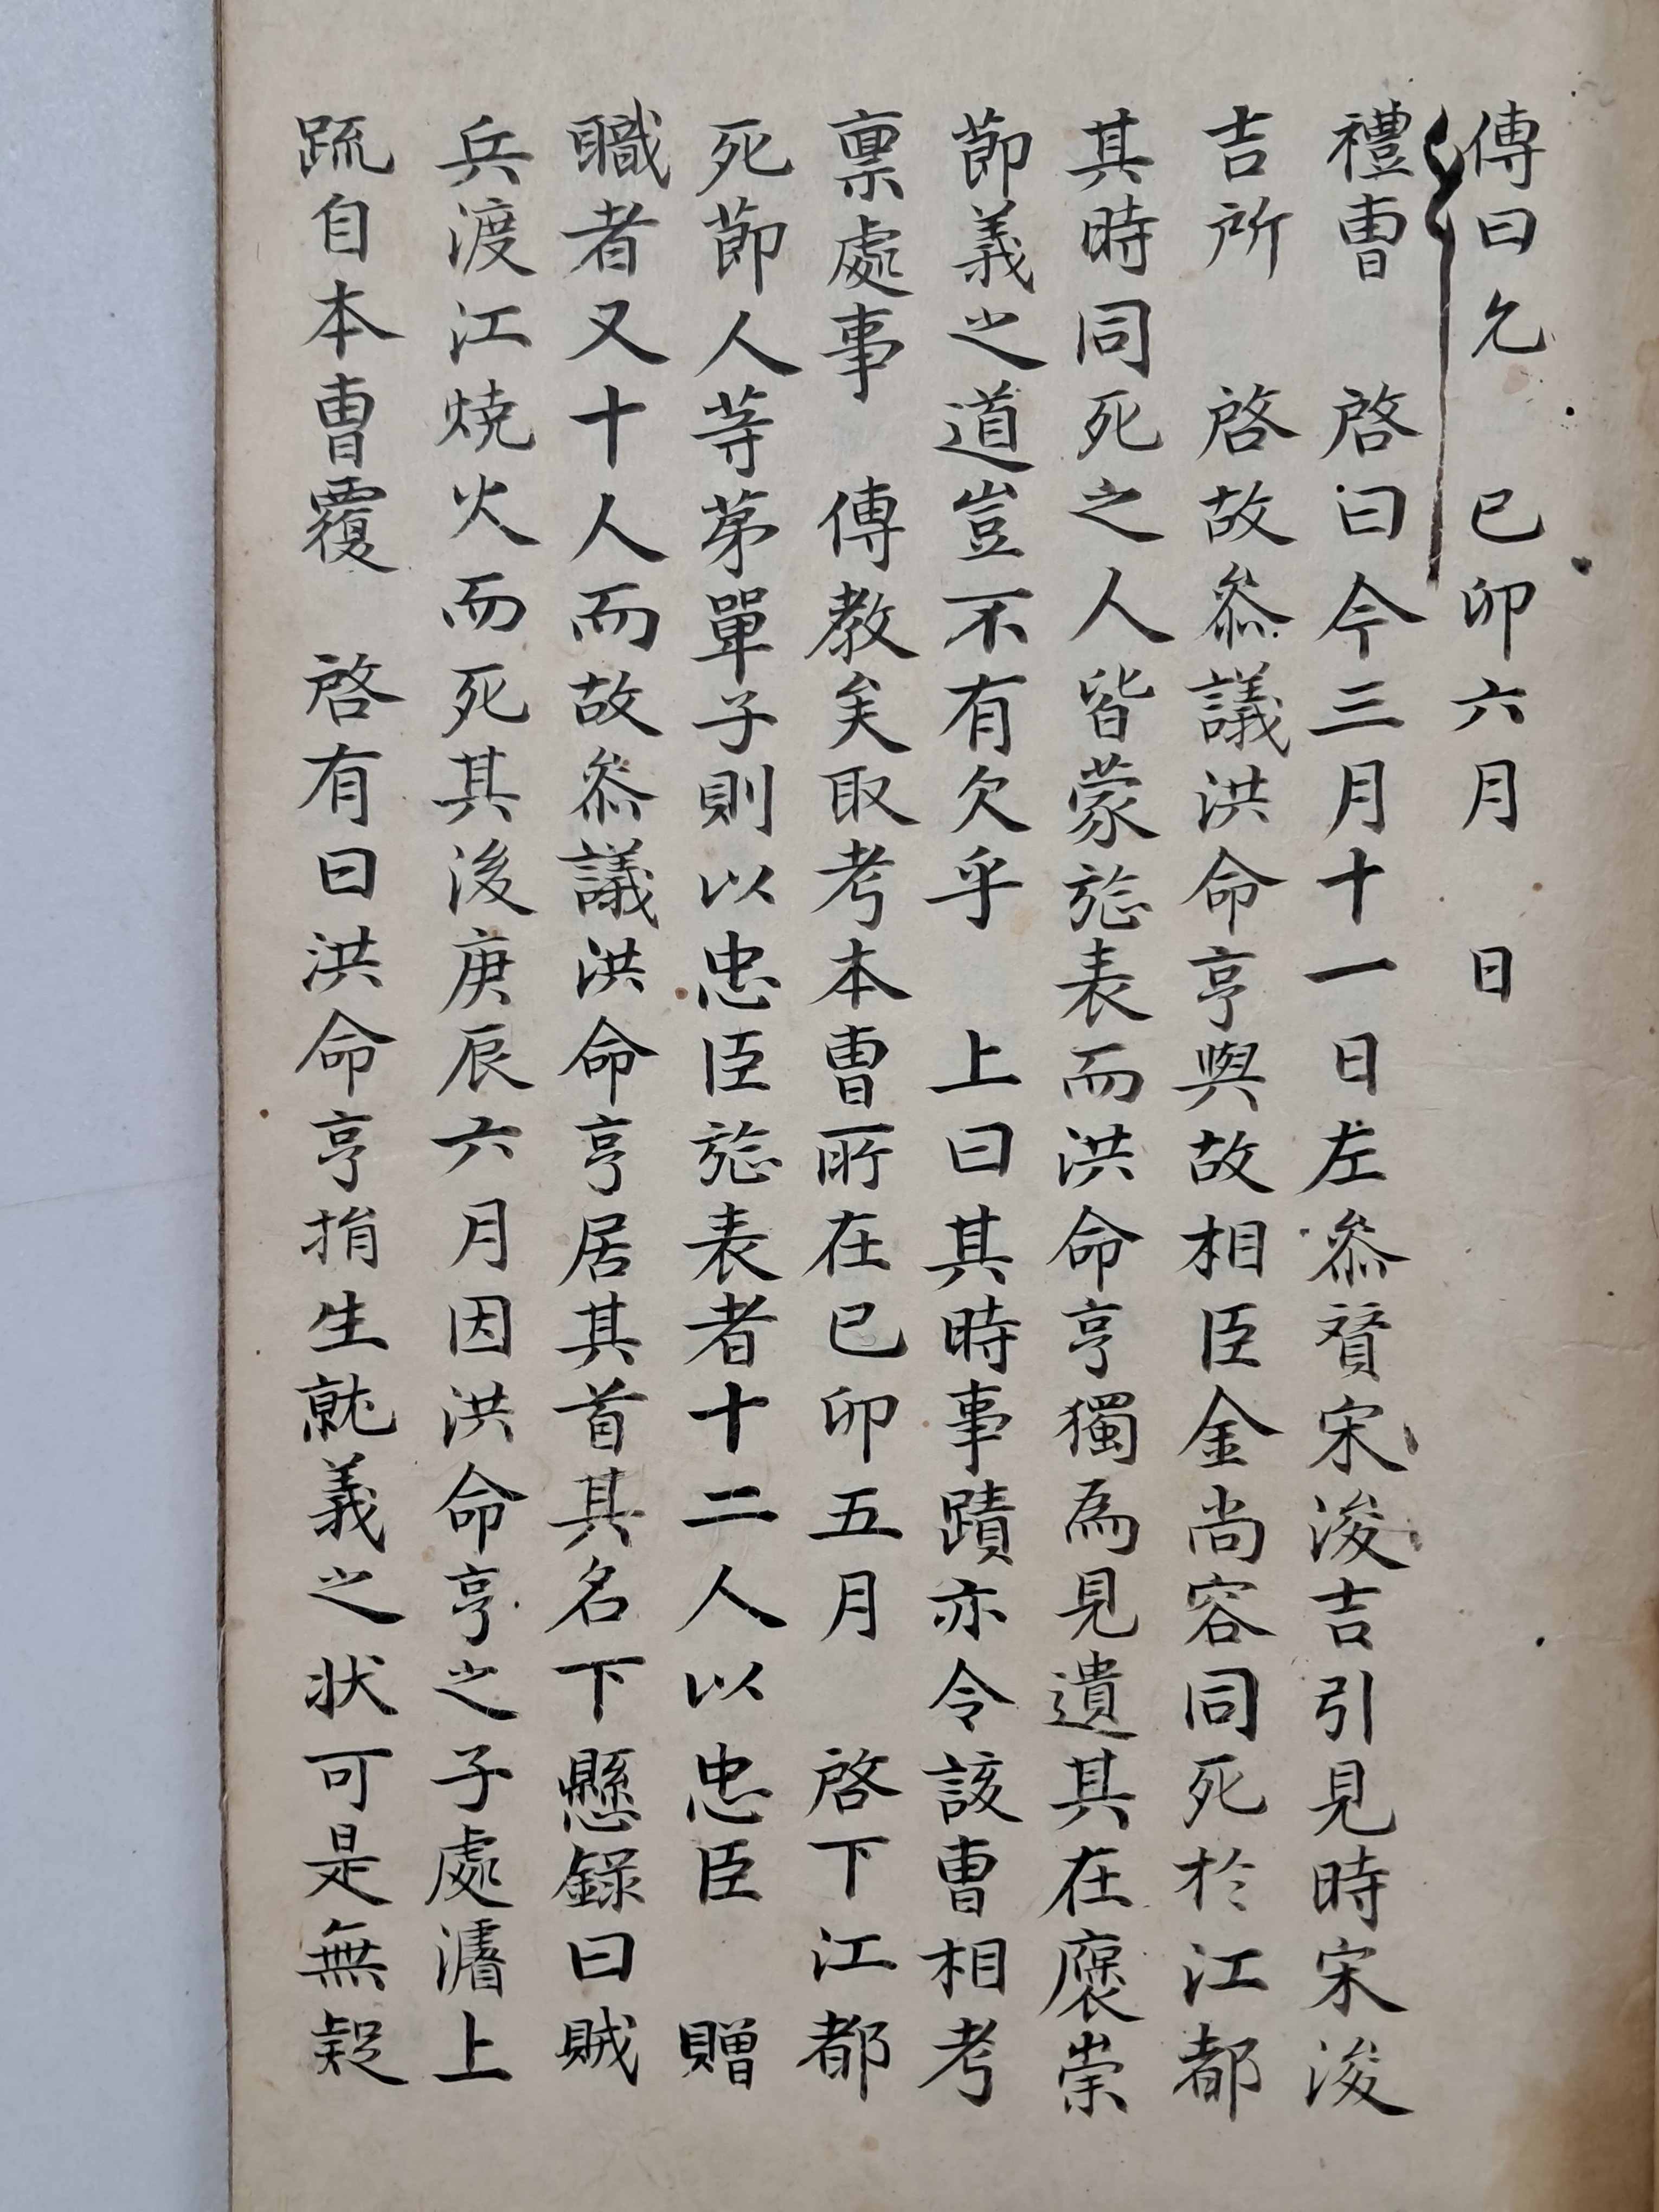 傳曰允 己卯六月 日
禮曹 啓曰今三月十一日左叅賛宋浚吉引見時宋浚
吉所 啓故叅議洪命亨與故相臣金尙容同死於江都
其時同死之人皆蒙旌表而洪命亨獨爲見遺其在褒崇
節義之道豈不有欠乎 上曰其時事蹟亦令該曹相考
稟處事 傳教矣取考本曹所在己卯五月 啓下江都
死節人等第單子則以忠臣旌表者十二人以忠臣 贈
職者又十人而故叅議洪命亨居其首其名下懸錄曰賊
兵渡江燒火而死其後庚辰六月因洪命亨之子處濬上
疏自本曹覆 啓有曰洪命亨捐生就義之狀可是無疑